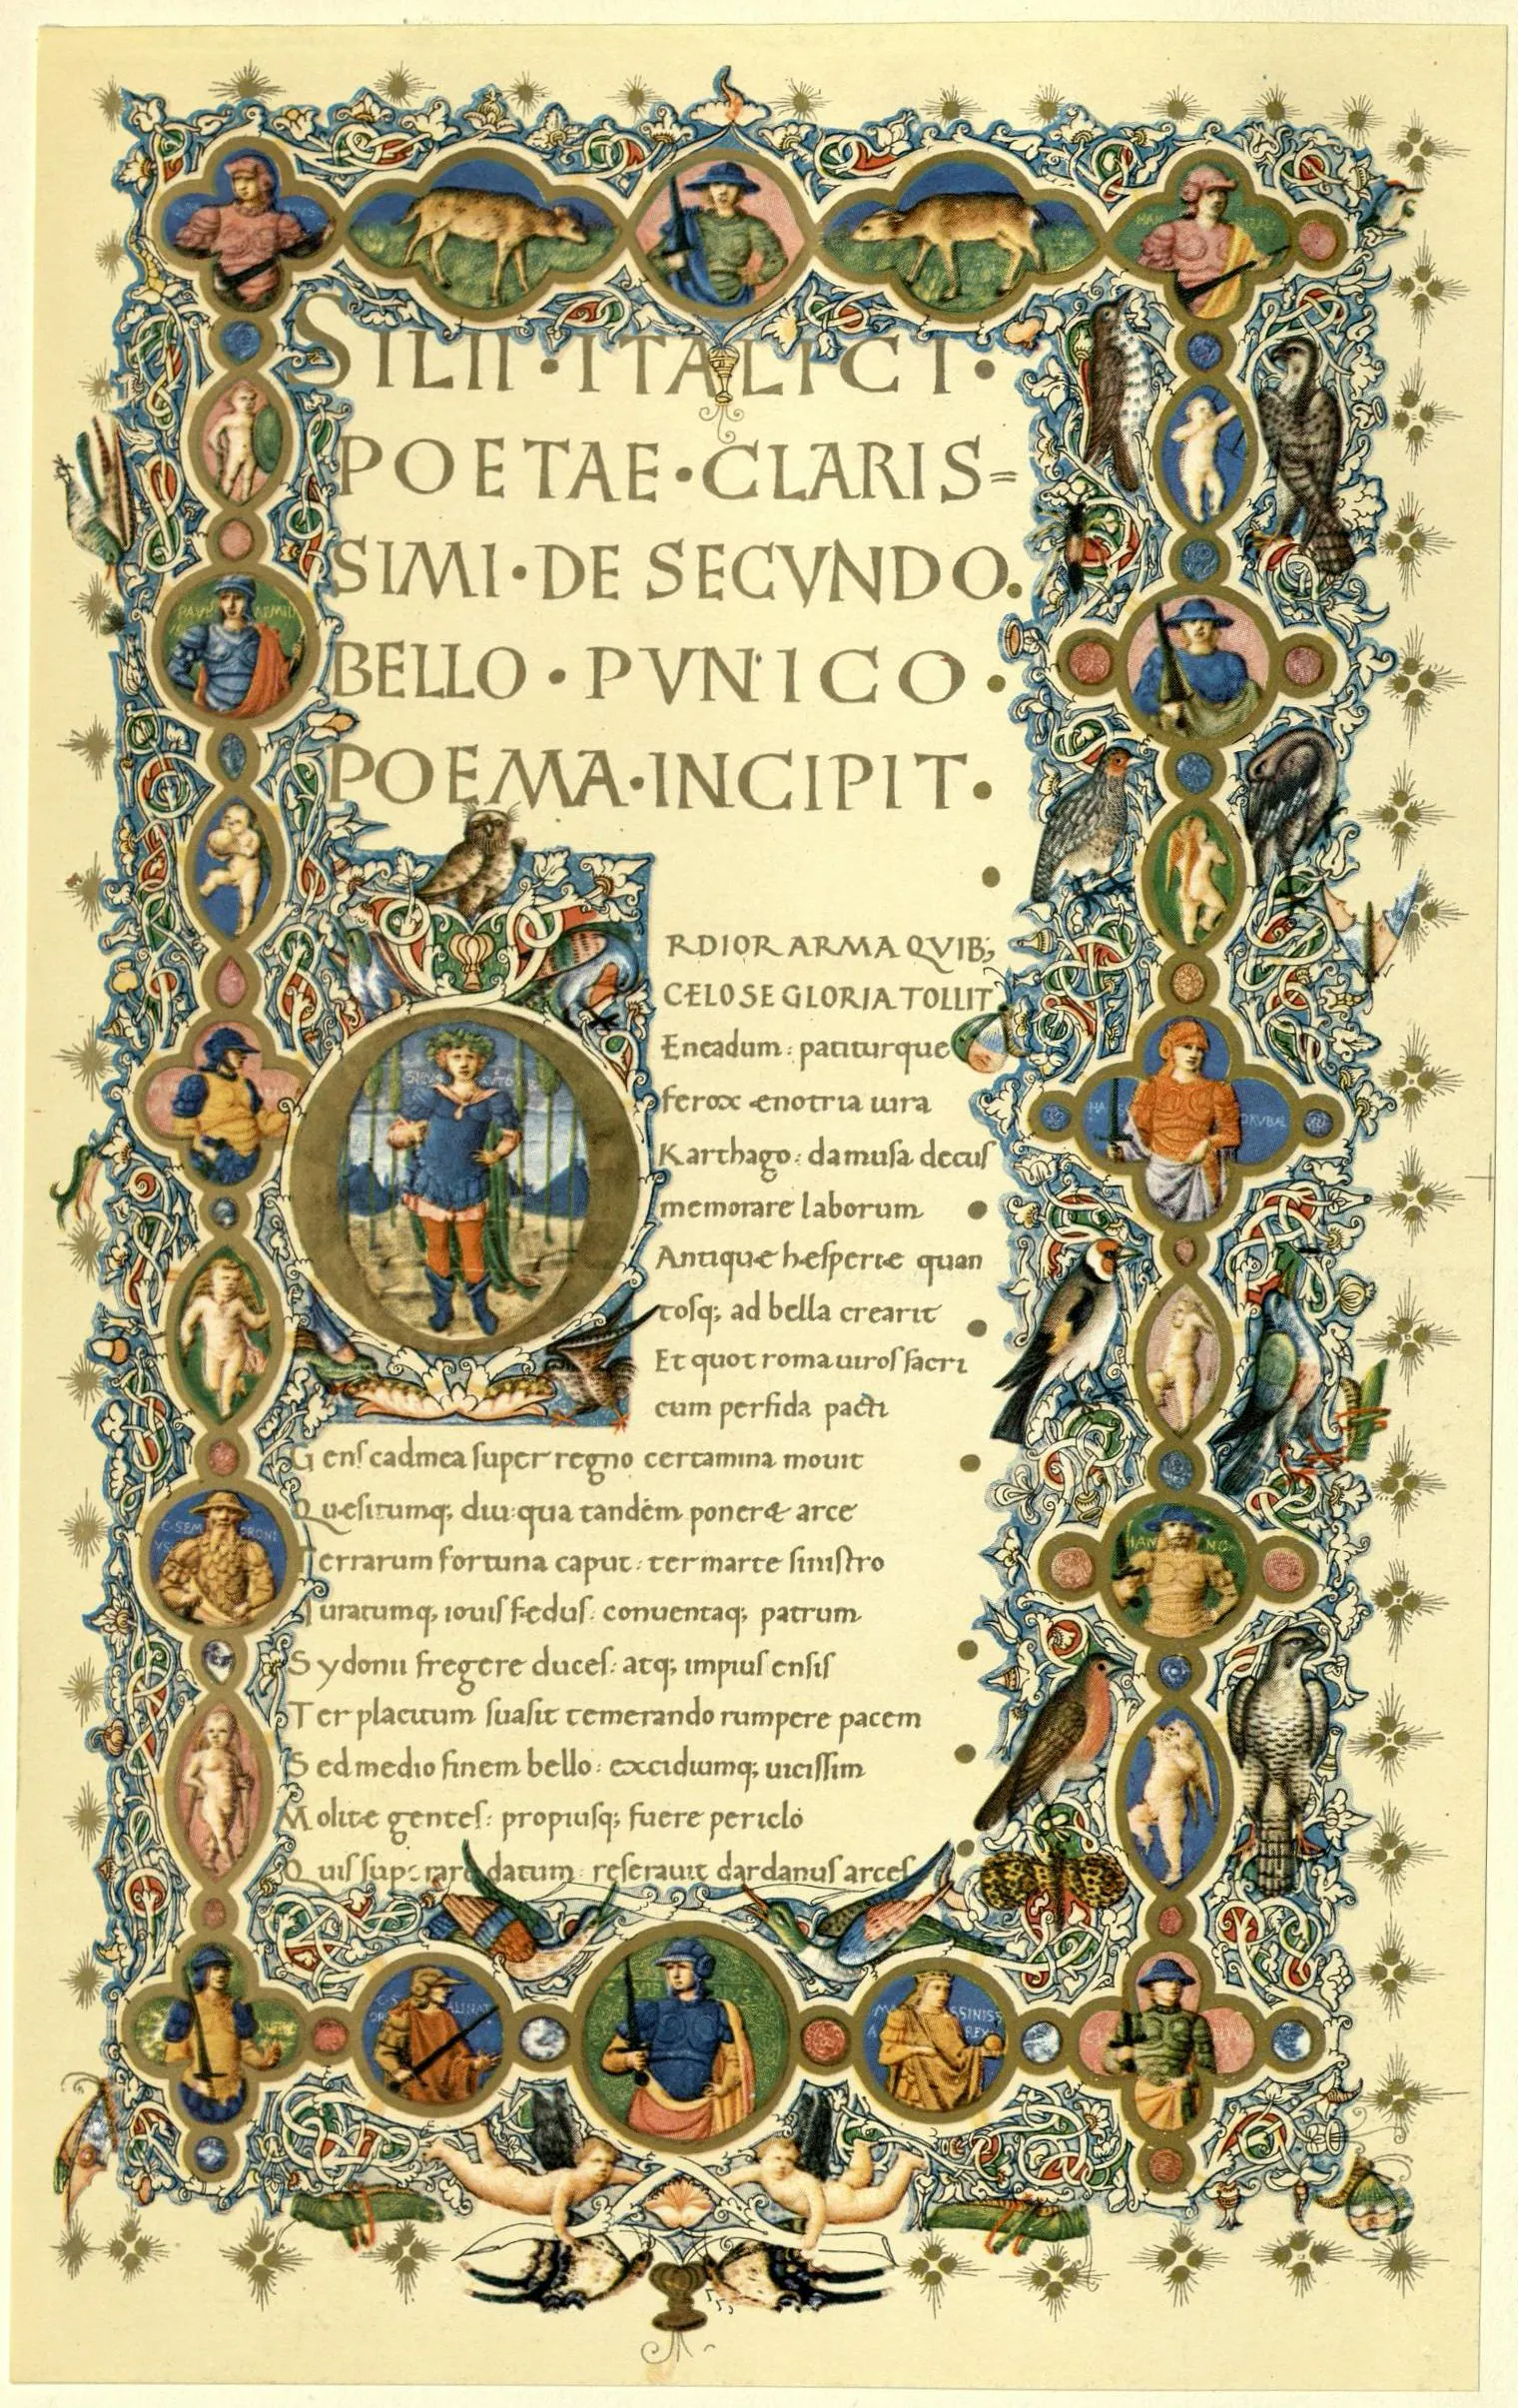 SILII · ITALICI ·
POETAE · CLARIS=
SIMI · DE SECVNDO.
BELLO · PVNICO ·
POEMA · INCIPIT ·
ORDIOR ARMA QVIB;
CELO SE GLORIA TOLLIT
Eneadum: patiturque
ferox enotria iura
Karthago: da musa decus
memorare laborum
Antique hesperie quan
tosq; ad bella crearit
Et quot roma uiros sacri
cum perfida pacti
Gens cadmea super regno certamina mouit
Quesitumq; diu: qua tandem poneret arce
Terrarum fortuna caput: ter marte sinistro
Iuratumq; iouis fedus: conuentaq; patrum
Sydonii fregere duces: atq; impius ensis
Ter placitum suasit temerando rumpere pacem
Sed medio finem bello: excidiumq; uicissim
Molite gentes: propiusq; fuere periclo
Quis superare datum: reserauit dardanus arces
HAN
PAVL EMIL
HAS DRVBAL
C·SEM PRONI
VS
HAN NO
MA SSINISS
A REX